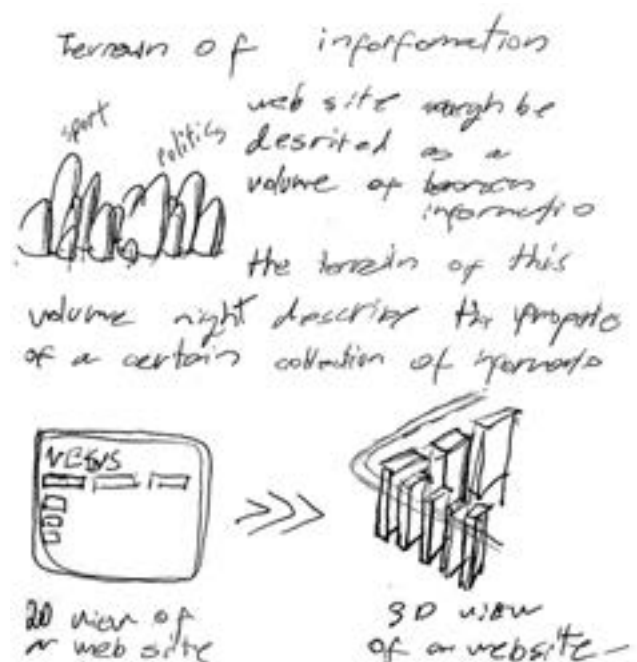 Terrain of inforformation
sport
politics
web site might be
desrited as a
volume of
informatio
the terrain of this
volume might describe the
of a certain collection of
NEWS
2D view of
a web site
3D view
of a website